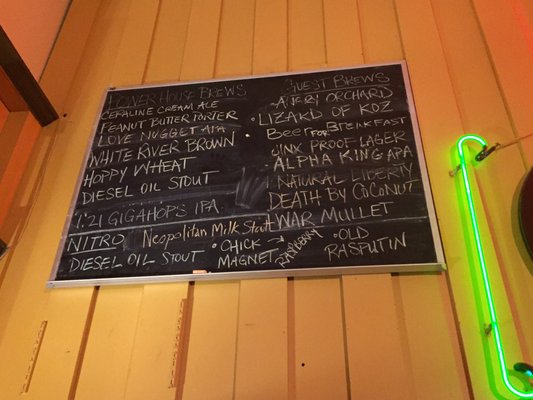 POWER HOUSE BREWS
CERALINE CREAM ALE
PEANUT BUTTER PORTER
LOVE NUGGET APA
WHITE RIVER BROWN
HOPPY WHEAT
DIESEL OIL STOUT
1.21 GIGAHOPS IPA
NITRO Neopolitan Milk Stout
DIESEL OIL STOUT
GUEST BREWS
ORCHARD
LIZARD OF KOZ
Beer FOR BREAKFAST
JINX PROOF LAGER
ALPHA KING APA
NATURAL LIBERTY
DEATH By COCONUT
WAR MULLET
CHICK MAGNET RASPBERRY
OLD RASPUTIN